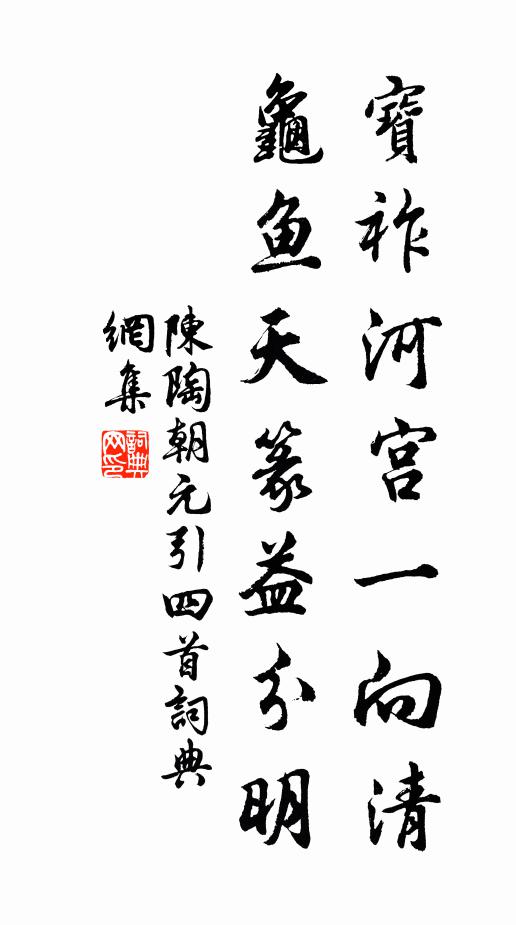 寶祚河宮一向清
龜鱼天篆益分明
陳陶朝元引四首詞典
網集
詞典网印